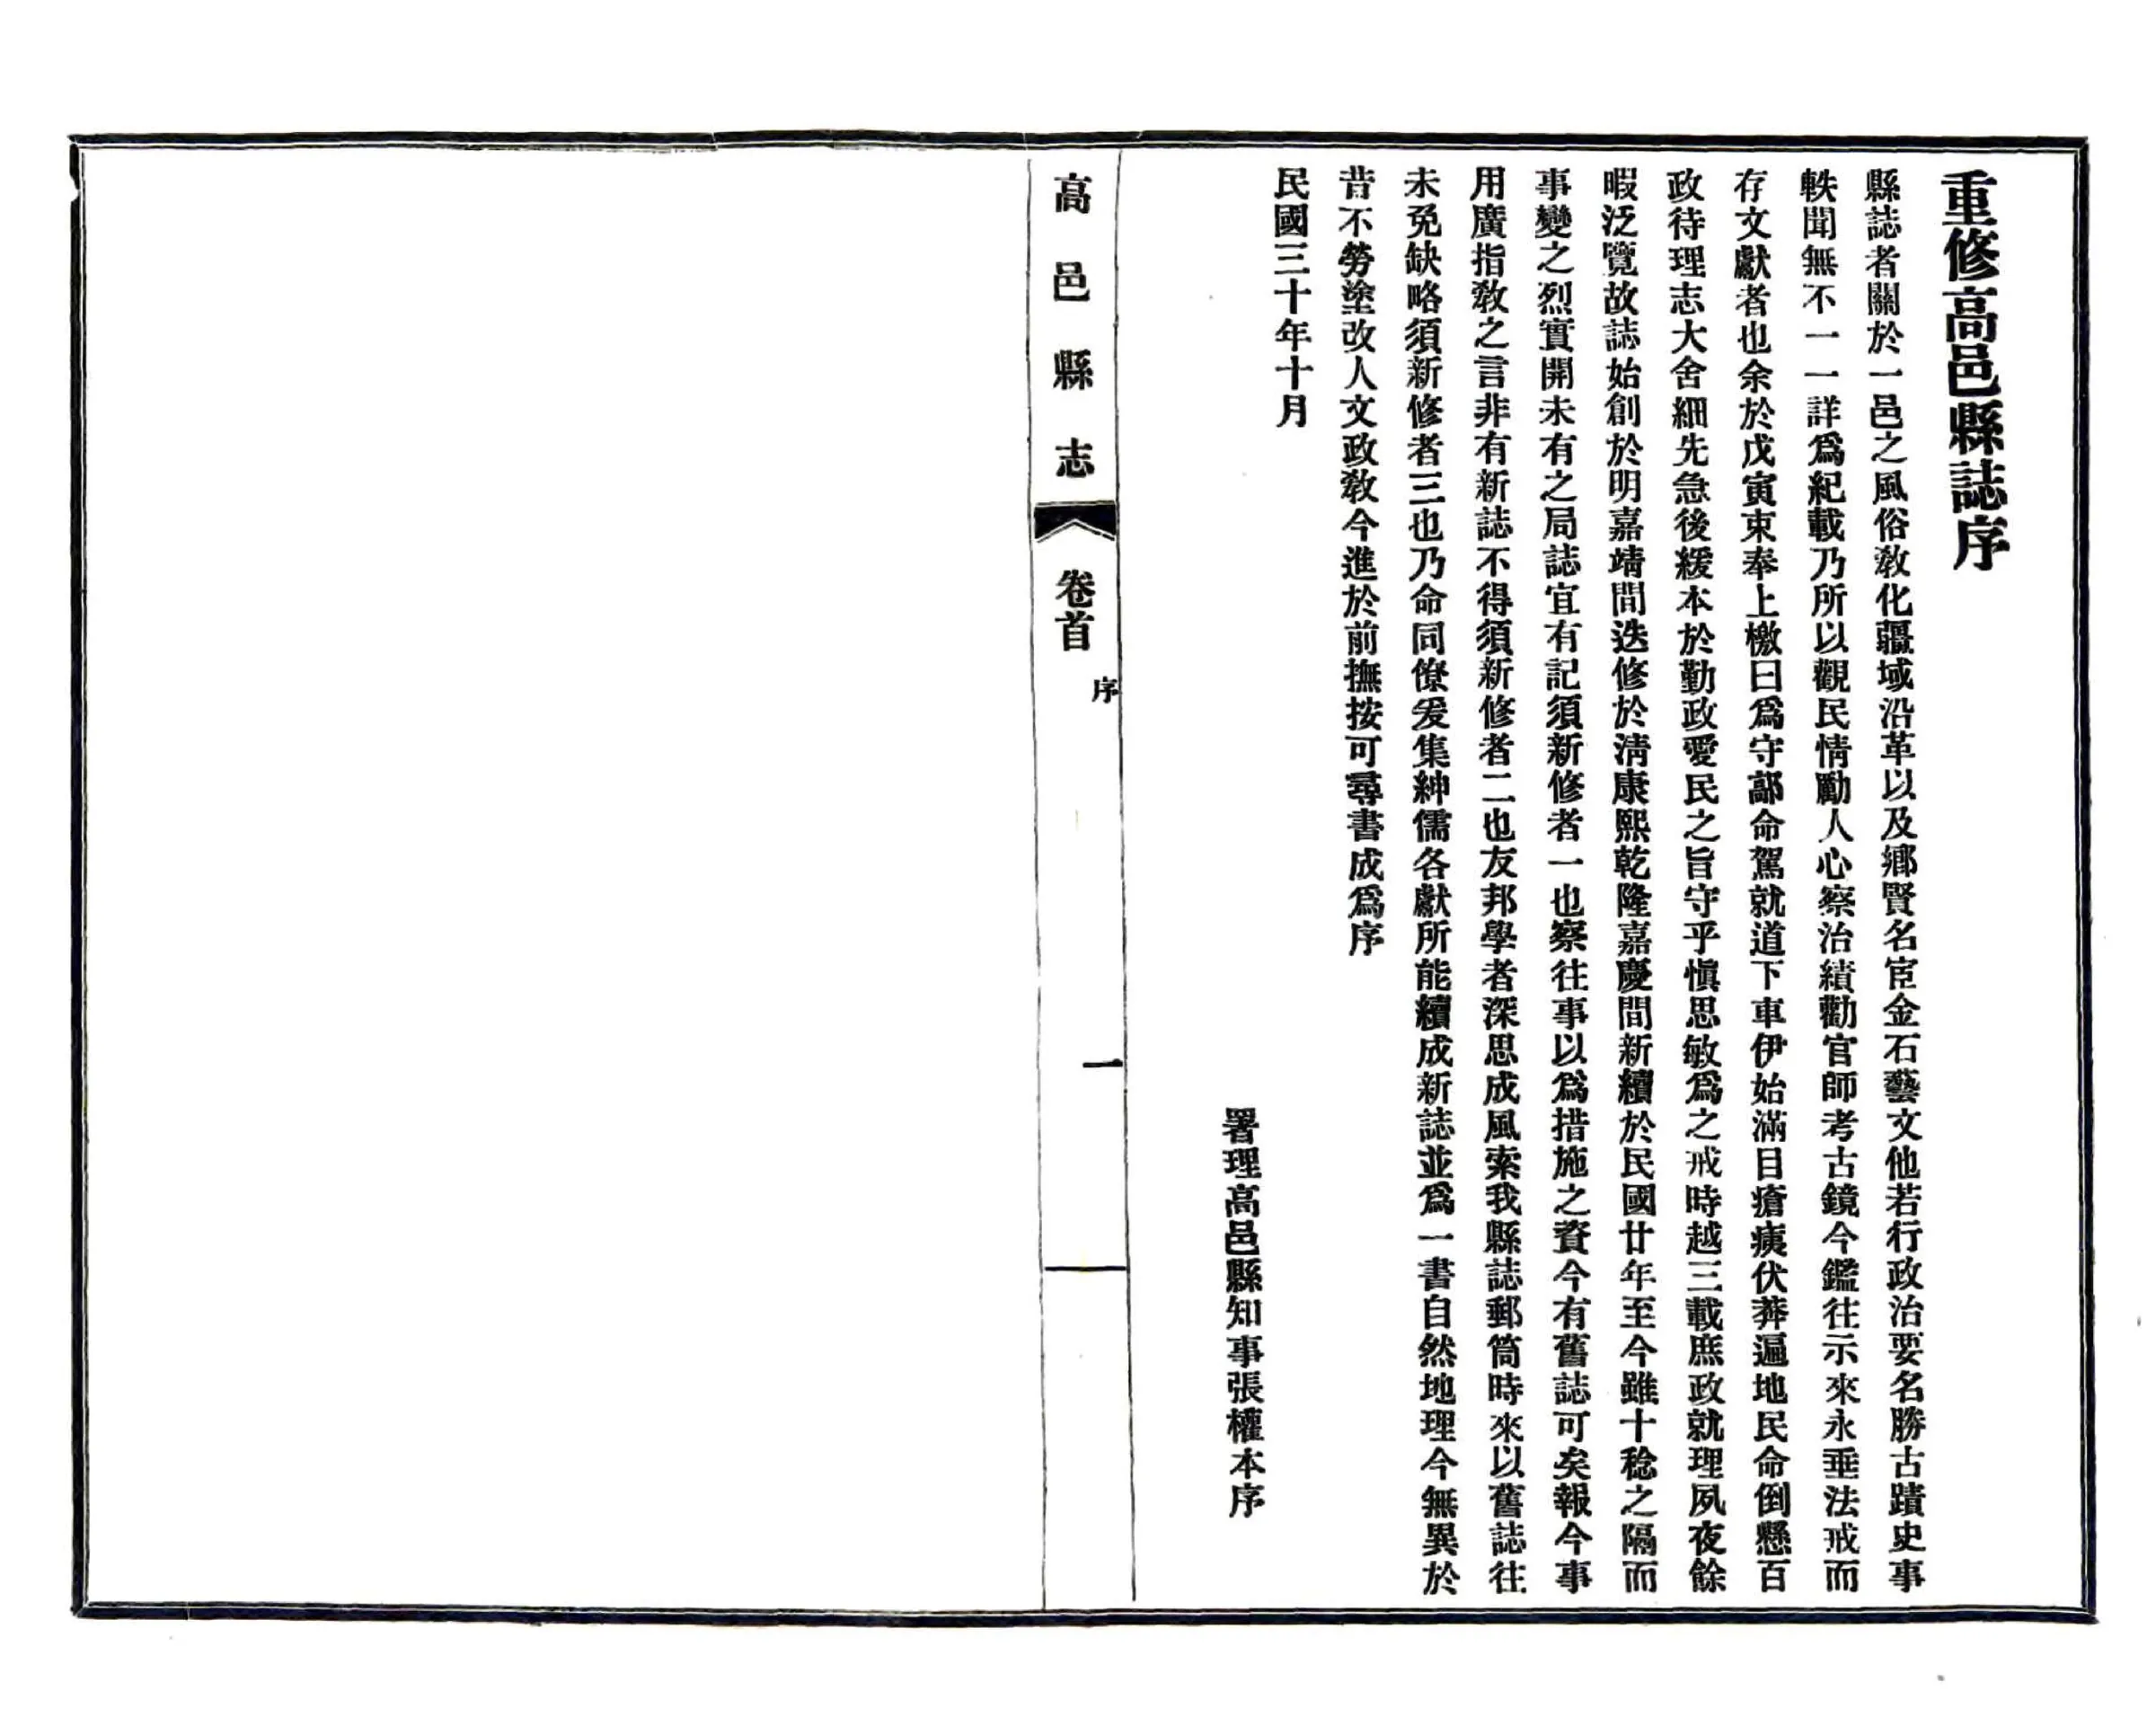 重修高邑縣誌序
縣誌者關於一邑之風俗教化疆域沿革以及鄉賢名宦金石藝文他若行政治要名勝古蹟史事
軼聞無不一一詳爲紀載乃所以觀民情勵人心察治績勸官師考古鏡今鑑往示來永垂法戒而
存文獻者也余於戊寅束奉上檄曰爲守鄗命駕就道下車伊始滿目瘡痍伏莽遍地民命倒懸百
政待理志大舍細先急後緩本於勤政愛民之旨守乎愼思敏爲之戒時越三載庶政就理夙夜餘
暇泛覽故誌始創於明嘉靖間迭修於淸康熙乾隆嘉慶間新續於民國廿年至今雖十稔之隔而
事變之烈實開未有之局誌宜有記須新修者一也察往事以爲措施之資今有舊誌可矣報今事
用廣指敎之言非有新誌不得須新修者二也友邦學者深思成風索我縣誌郵筒時來以舊誌往
未免缺略須新修者三也乃命同僚爰集紳儒各獻所能續成新誌並爲一書自然地理今無異於
昔不勞塗改人文政敎今進於前撫按可尋書成爲序
民國三十年十月
署理高邑縣知事張權本序
高邑縣志
卷首
序
一